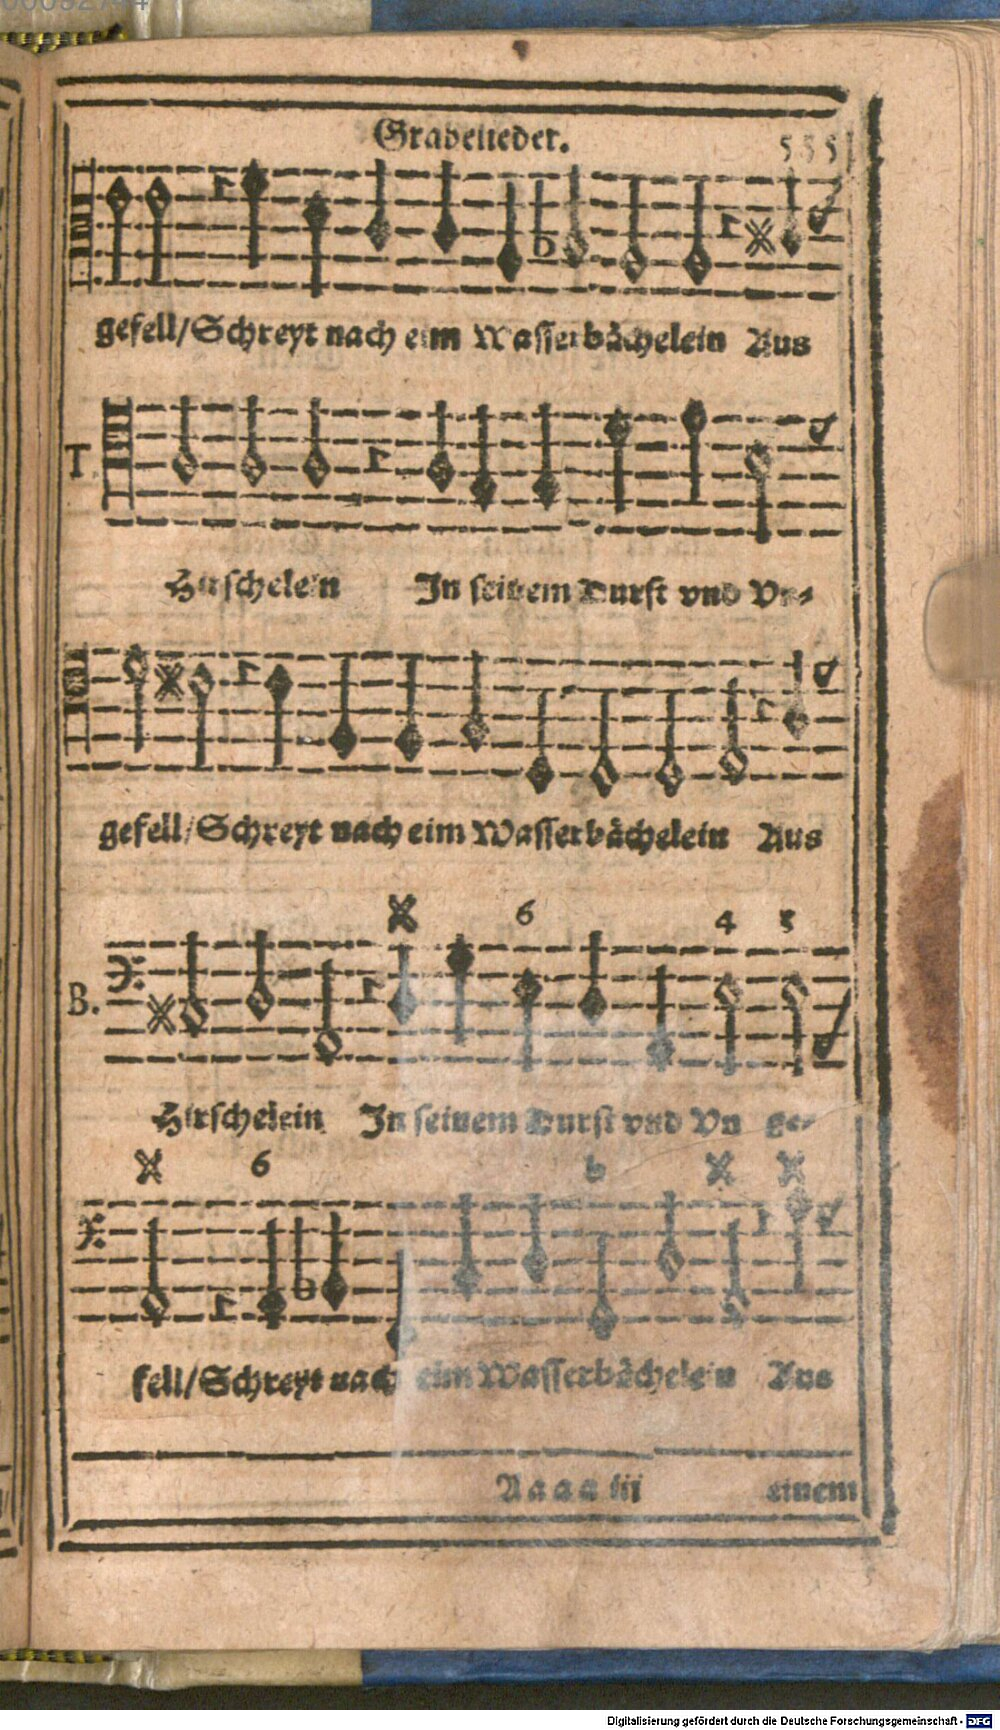 00092744
Grabelieder. 555
gefell/Schreyt nach eim Wasserbächelein Aus
T.
Hirschelein In seinem Durst vnd Vn-
gefell/Schreyt nach eim Wasserbächelein Aus
6 4 3
B.
Hirschelein In seinem Durst vnd Vn ge-
6 b
fell/Schreyt nach eim Wasserbächelein Aus
Aaaa iii einem
Digitalisierung gefördert durch die Deutsche Forschungsgemeinschaft - DFG